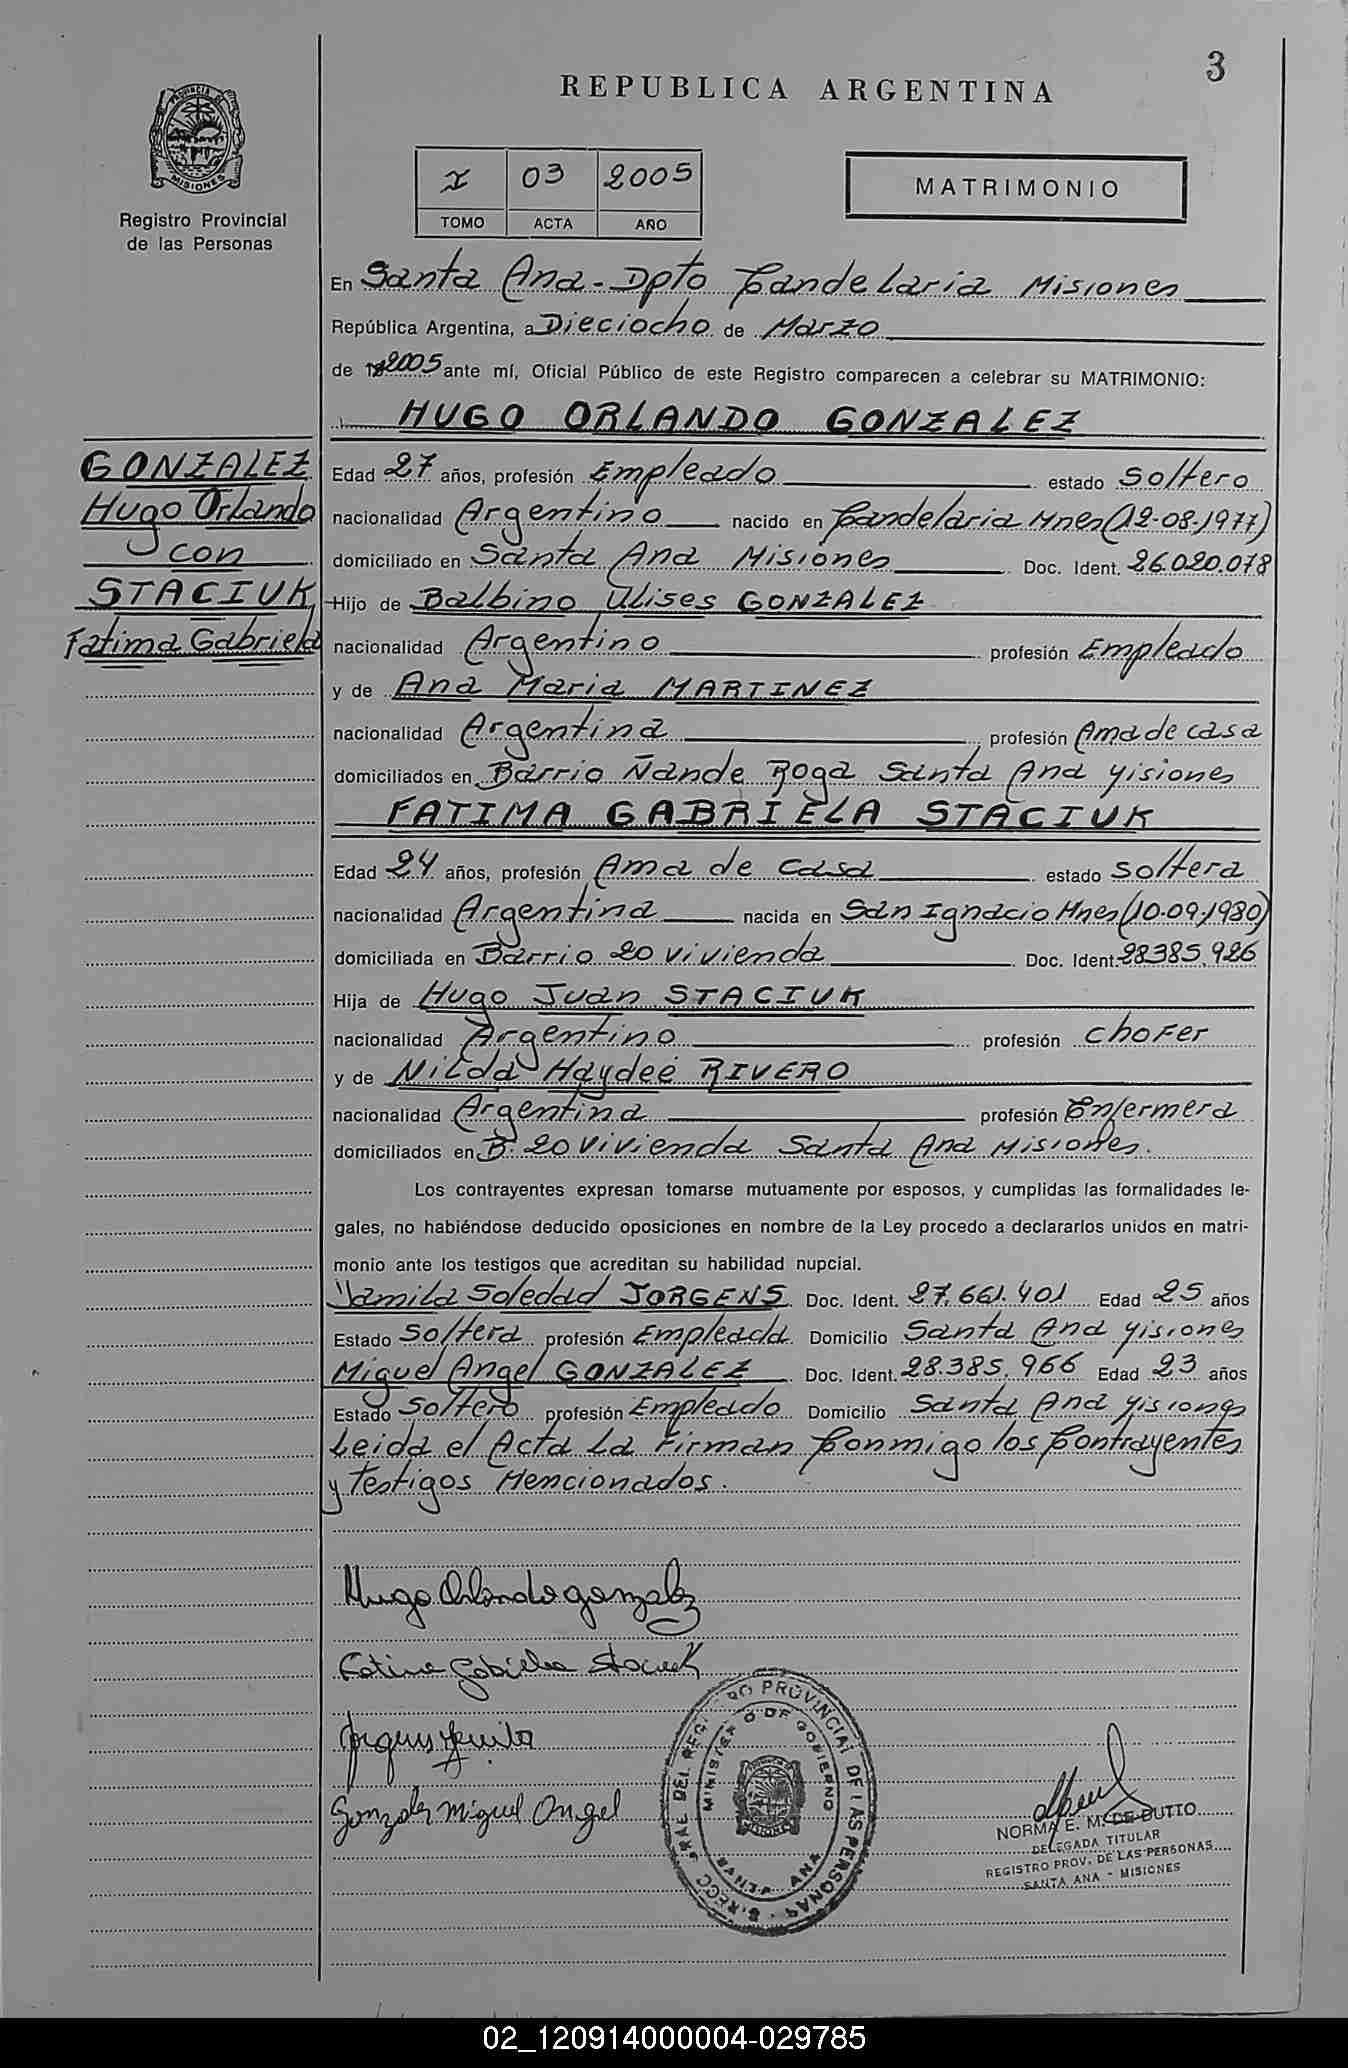 3
REPUBLICA ARGENTINA
PROVINCIA DE
MISIONES
Registro Provincial
de las Personas
I 03 2005
TOMO ACTA AÑO
MATRIMONIO
En Santa Ana - Dpto Candelaria Misiones
República Argentina, a Dieciocho de Marzo
de 2005 ante mí, Oficial Público de este Registro comparecen a celebrar su MATRIMONIO:
HUGO ORLANDO GONZALEZ
GONZALEZ
Hugo Orlando
con
STACIUK
Fatima Gabriela
Edad 27 años, profesión Empleado estado Soltero
nacionalidad Argentino nacido en Candelaria Mnes (12-08-1977)
domiciliado en Santa Ana Misiones Doc. Ident. 26.020.078
Hijo de Balbino Ulises GONZALEZ
nacionalidad Argentino profesión Empleado
y de Ana Maria MARTINEZ
nacionalidad Argentina profesión Ama de casa
domiciliados en Barrio Ñande Roga Santa Ana Misiones
FATIMA GABRIELA STACIUK
Edad 24 años, profesión Ama de Casa estado Soltera
nacionalidad Argentina nacida en San Ignacio Mnes (10-09-1980)
domiciliada en Barrio 20 vivienda Doc. Ident. 28385.926
Hija de Hugo Juan STACIUK
nacionalidad Argentino profesión Chofer
y de Nilda Haydeé RIVERO
nacionalidad Argentina profesión Enfermera
domiciliados en B. 20 vivienda Santa Ana Misiones.
Los contrayentes expresan tomarse mutuamente por esposos, y cumplidas las formalidades le-
gales, no habiéndose deducido oposiciones en nombre de la Ley procedo a declararlos unidos en matri-
monio ante los testigos que acreditan su habilidad nupcial.
Yamila Soledad JORGENS Doc. Ident. 27.661.401 Edad 25 años
Estado Soltera profesión Empleada Domicilio Santa Ana Misiones
Miguel Angel GONZALEZ Doc. Ident. 28.385.966 Edad 23 años
Estado Soltero profesión Empleado Domicilio Santa Ana Misiones
Leida el Acta La Firman Conmigo los Contrayentes
y Testigos Mencionados.
Hugo Orlando gonzalez
Fatima Gabriela Staciuk
Jorgens Yamila
Gonzalez Miguel Angel
GRAL DEL REGISTRO PROVINCIAL DE LAS PERSONAS
MINISTERIO DE GOBIERNO
SANTA ANA
NORMA E. M. DE DUTTO
DELEGADA TITULAR
REGISTRO PROV. DE LAS PERSONAS
SANTA ANA - MISIONES
02_120914000004-029785